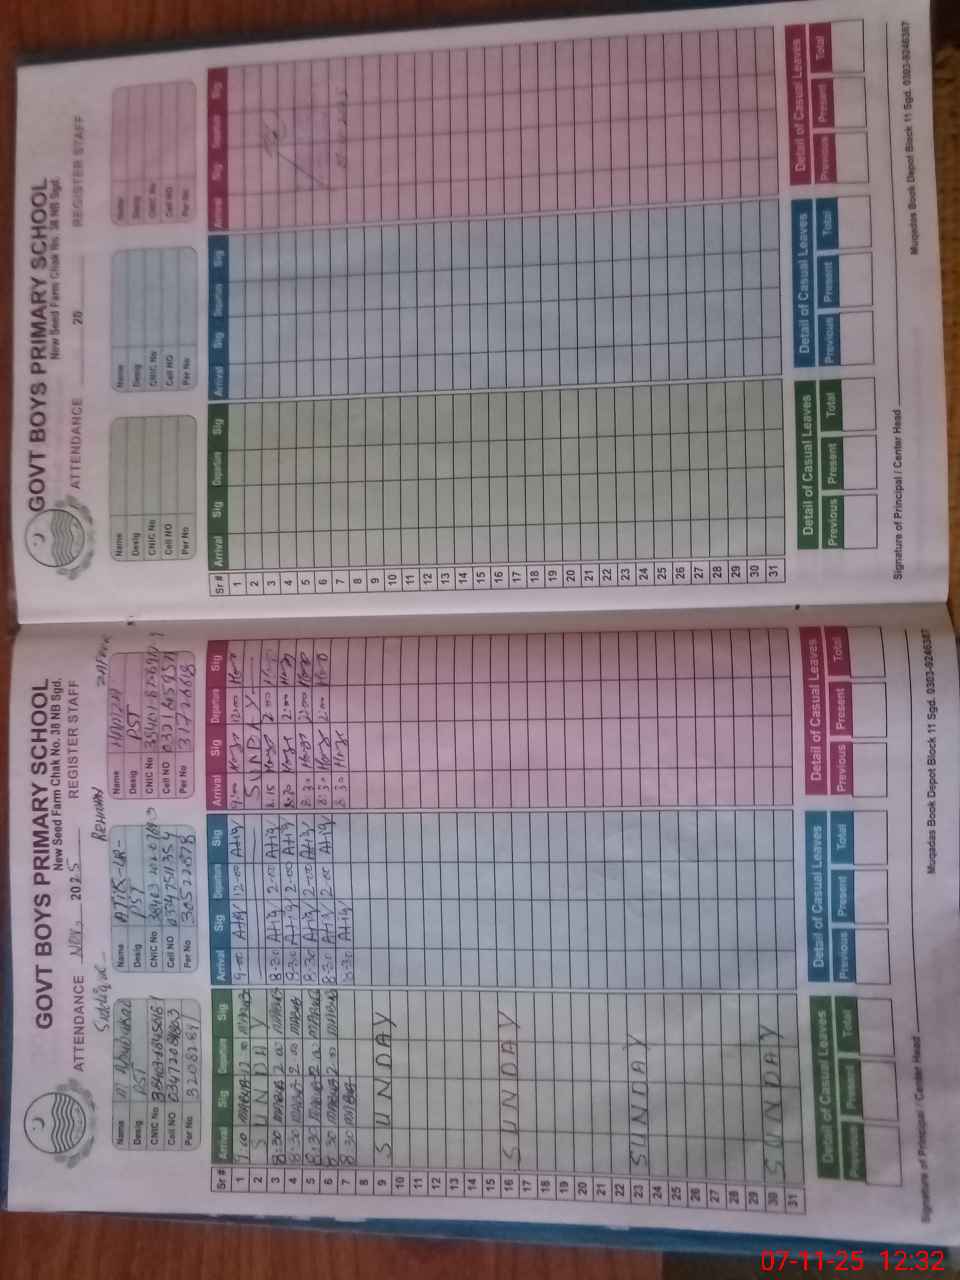 GOVT BOYS PRIMARY SCHOOL
New Seed Farm Chak No. 38 NB Sgd.
ATTENDANCE Nov, 2025 REGISTER STAFF
Siddique Rehman
Name M Abubakar Name ATIK-UR- Name
Desig PST Desig PST Desig PST
CNIC No CNIC No CNIC No
Cell NO Cell NO Cell NO
Per No Per No 30522878 Per No
Sr # Arrival Sig Departure Sig Arrival Sig Departure Sig Arrival Sig Departure Sig
1 9.00 12.00 9.00 Atiq 12.00 Atiq 9:00 12:00
2 SUNDAY SUNDAY
3 8:30 2.00 8.30 Atiq 2.00 Atiq 8.15 2:00
4 8:30 2.00 8.30 Atiq 2.00 Atiq 8:30 2:00
5 8.30 2.00 8.30 Atiq 2.00 Atiq 8:30 2:00
6 8.30 2.00 8.30 Atiq 2.00 Atiq 8:30 2:00
7 8.30 8.30 Atiq 8:30
8
9 SUNDAY
10
11
12
13
14
15
16 SUNDAY
17
18
19
20
21
22
23 SUNDAY
24
25
26
27
28
29
30 SUNDAY
31
Detail of Casual Leaves Detail of Casual Leaves Detail of Casual Leaves
Previous Present Total Previous Present Total Previous Present Total
Signature of Principal / Center Head
Muqadas Book Depot Block 11 Sgd. 0303-9246387
GOVT BOYS PRIMARY SCHOOL
New Seed Farm Chak No. 38 NB Sgd.
ATTENDANCE 20 REGISTER STAFF
Name Name Name
Desig Desig Desig
CNIC No CNIC No CNIC No
Cell NO Cell NO Cell NO
Per No Per No Per No
Sr # Arrival Sig Departure Sig Arrival Sig Departure Sig Arrival Sig Departure Sig
1
2
3
4
5
6
7
8
9
10
11
12
13
14
15
16
17
18
19
20
21
22
23
24
25
26
27
28
29
30
31
Detail of Casual Leaves Detail of Casual Leaves Detail of Casual Leaves
Previous Present Total Previous Present Total Previous Present Total
Signature of Principal / Center Head
Muqadas Book Depot Block 11 Sgd. 0303-9246387
07-11-25 12:32